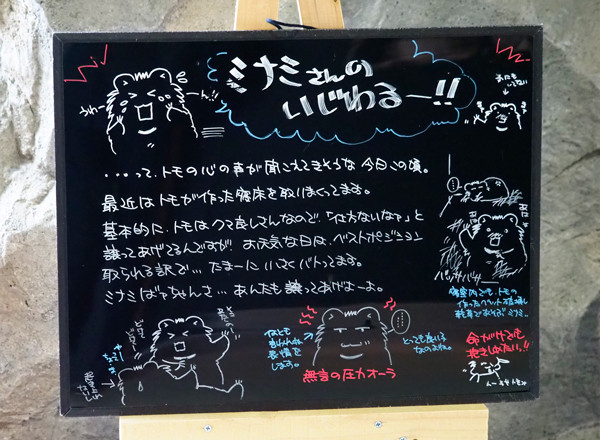 ミナミさんの
いじわる—!!
うわー
ん!!
・・・って、トモの心の声が聞こえてきそうな今日この頃。
最近はトモが作った寝床を取りまくってます。
基本的に、トモはクマ良してんなので、「仕方ないなァ」と
譲ってあげてるんですが、お天気な日は、ベストポジション
取られる訳で…たまーに小さくバトってます。
ミナミばァちゃんさ…あんたも譲ってあげなーよ。
バッサバサ
寝室内でも、トモの
作ったベッド破壊し
なんとも
言えんね
表情を
します。
無言の圧力オーラ
とっても良い子
なのよね。
命がけでも
抱きしめたいっ!!